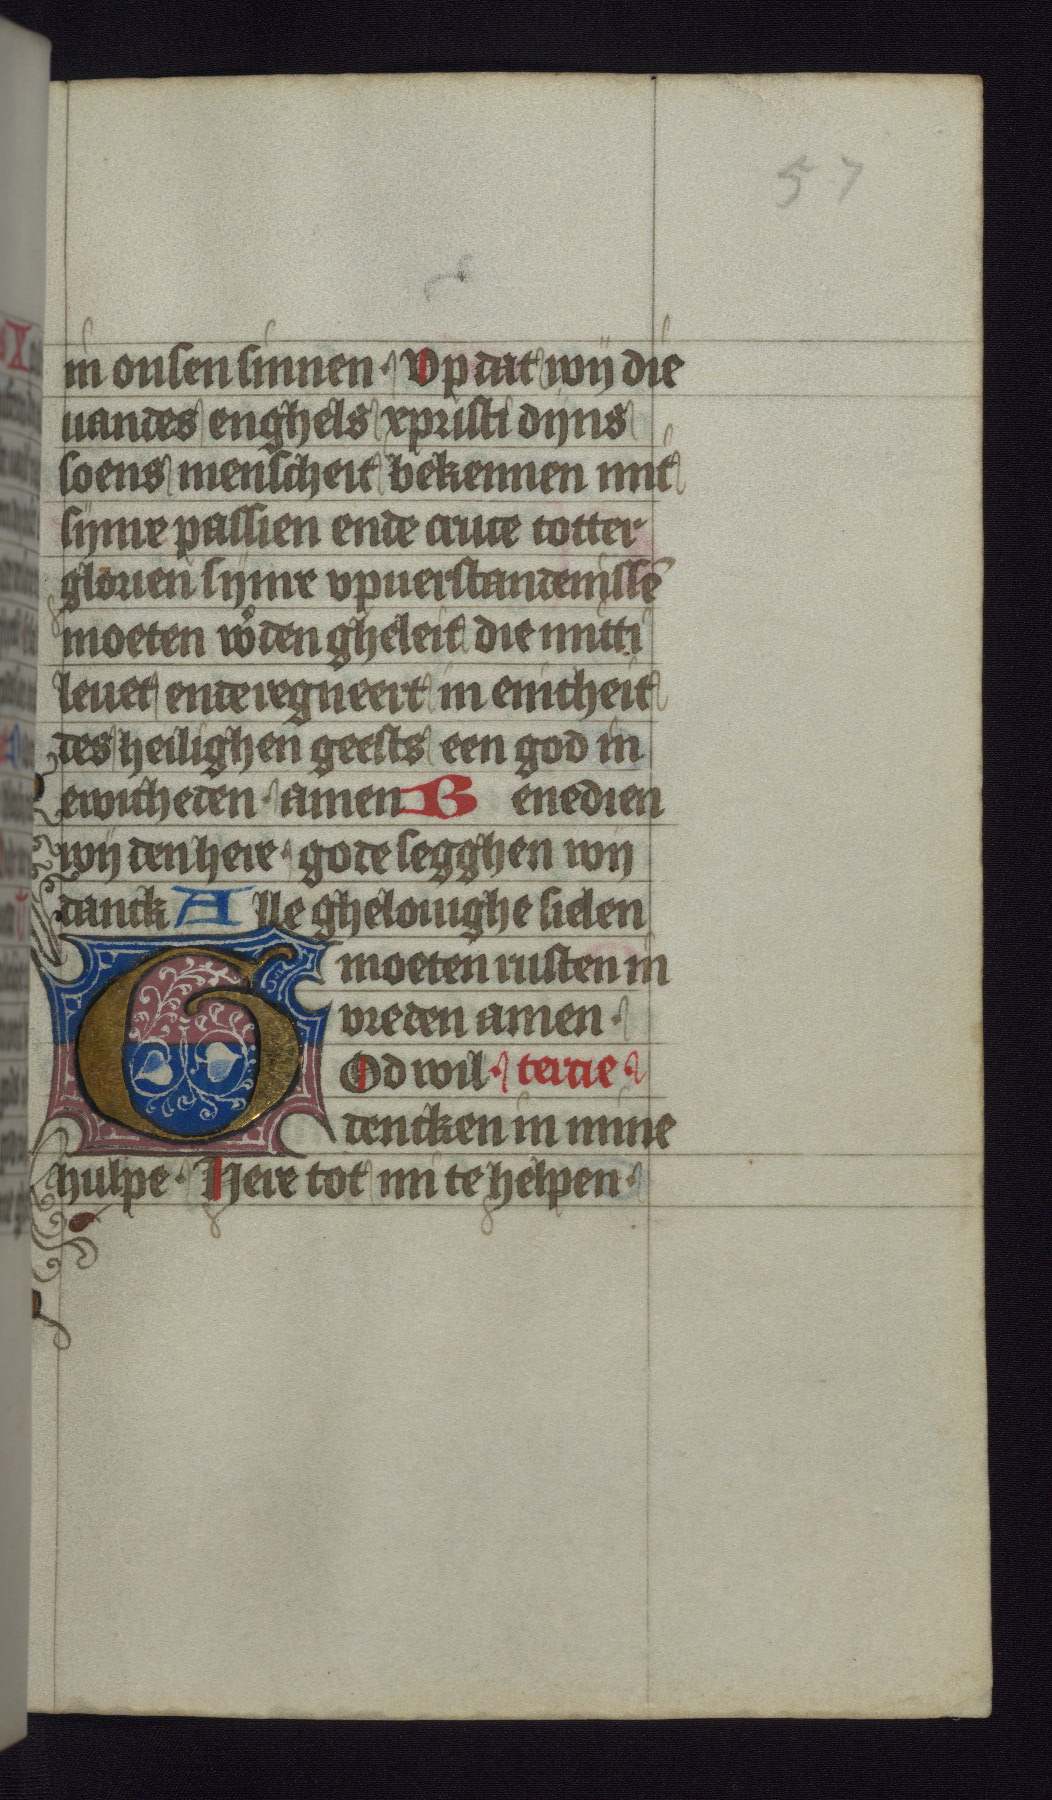 57
in onsen sinnen · Vp dat wij die
uandes enghels xpristi dijns
soens menscheit bekennen mit
sijnre passien ende cruce totter
glorien sijnre vpuerstandenissē
moeten wºden gheleit die mitti
leuet ende regneert in enicheit
des heilighen geests een god in
ewicheden · amen Benedien
wij den here · gode segghen wij
danck Alle ghelouighe sielen
moeten rusten in
vreden amen ·
God wil · tercie ·
dencken in mine
hulpe · Here tot mi te helpen ·